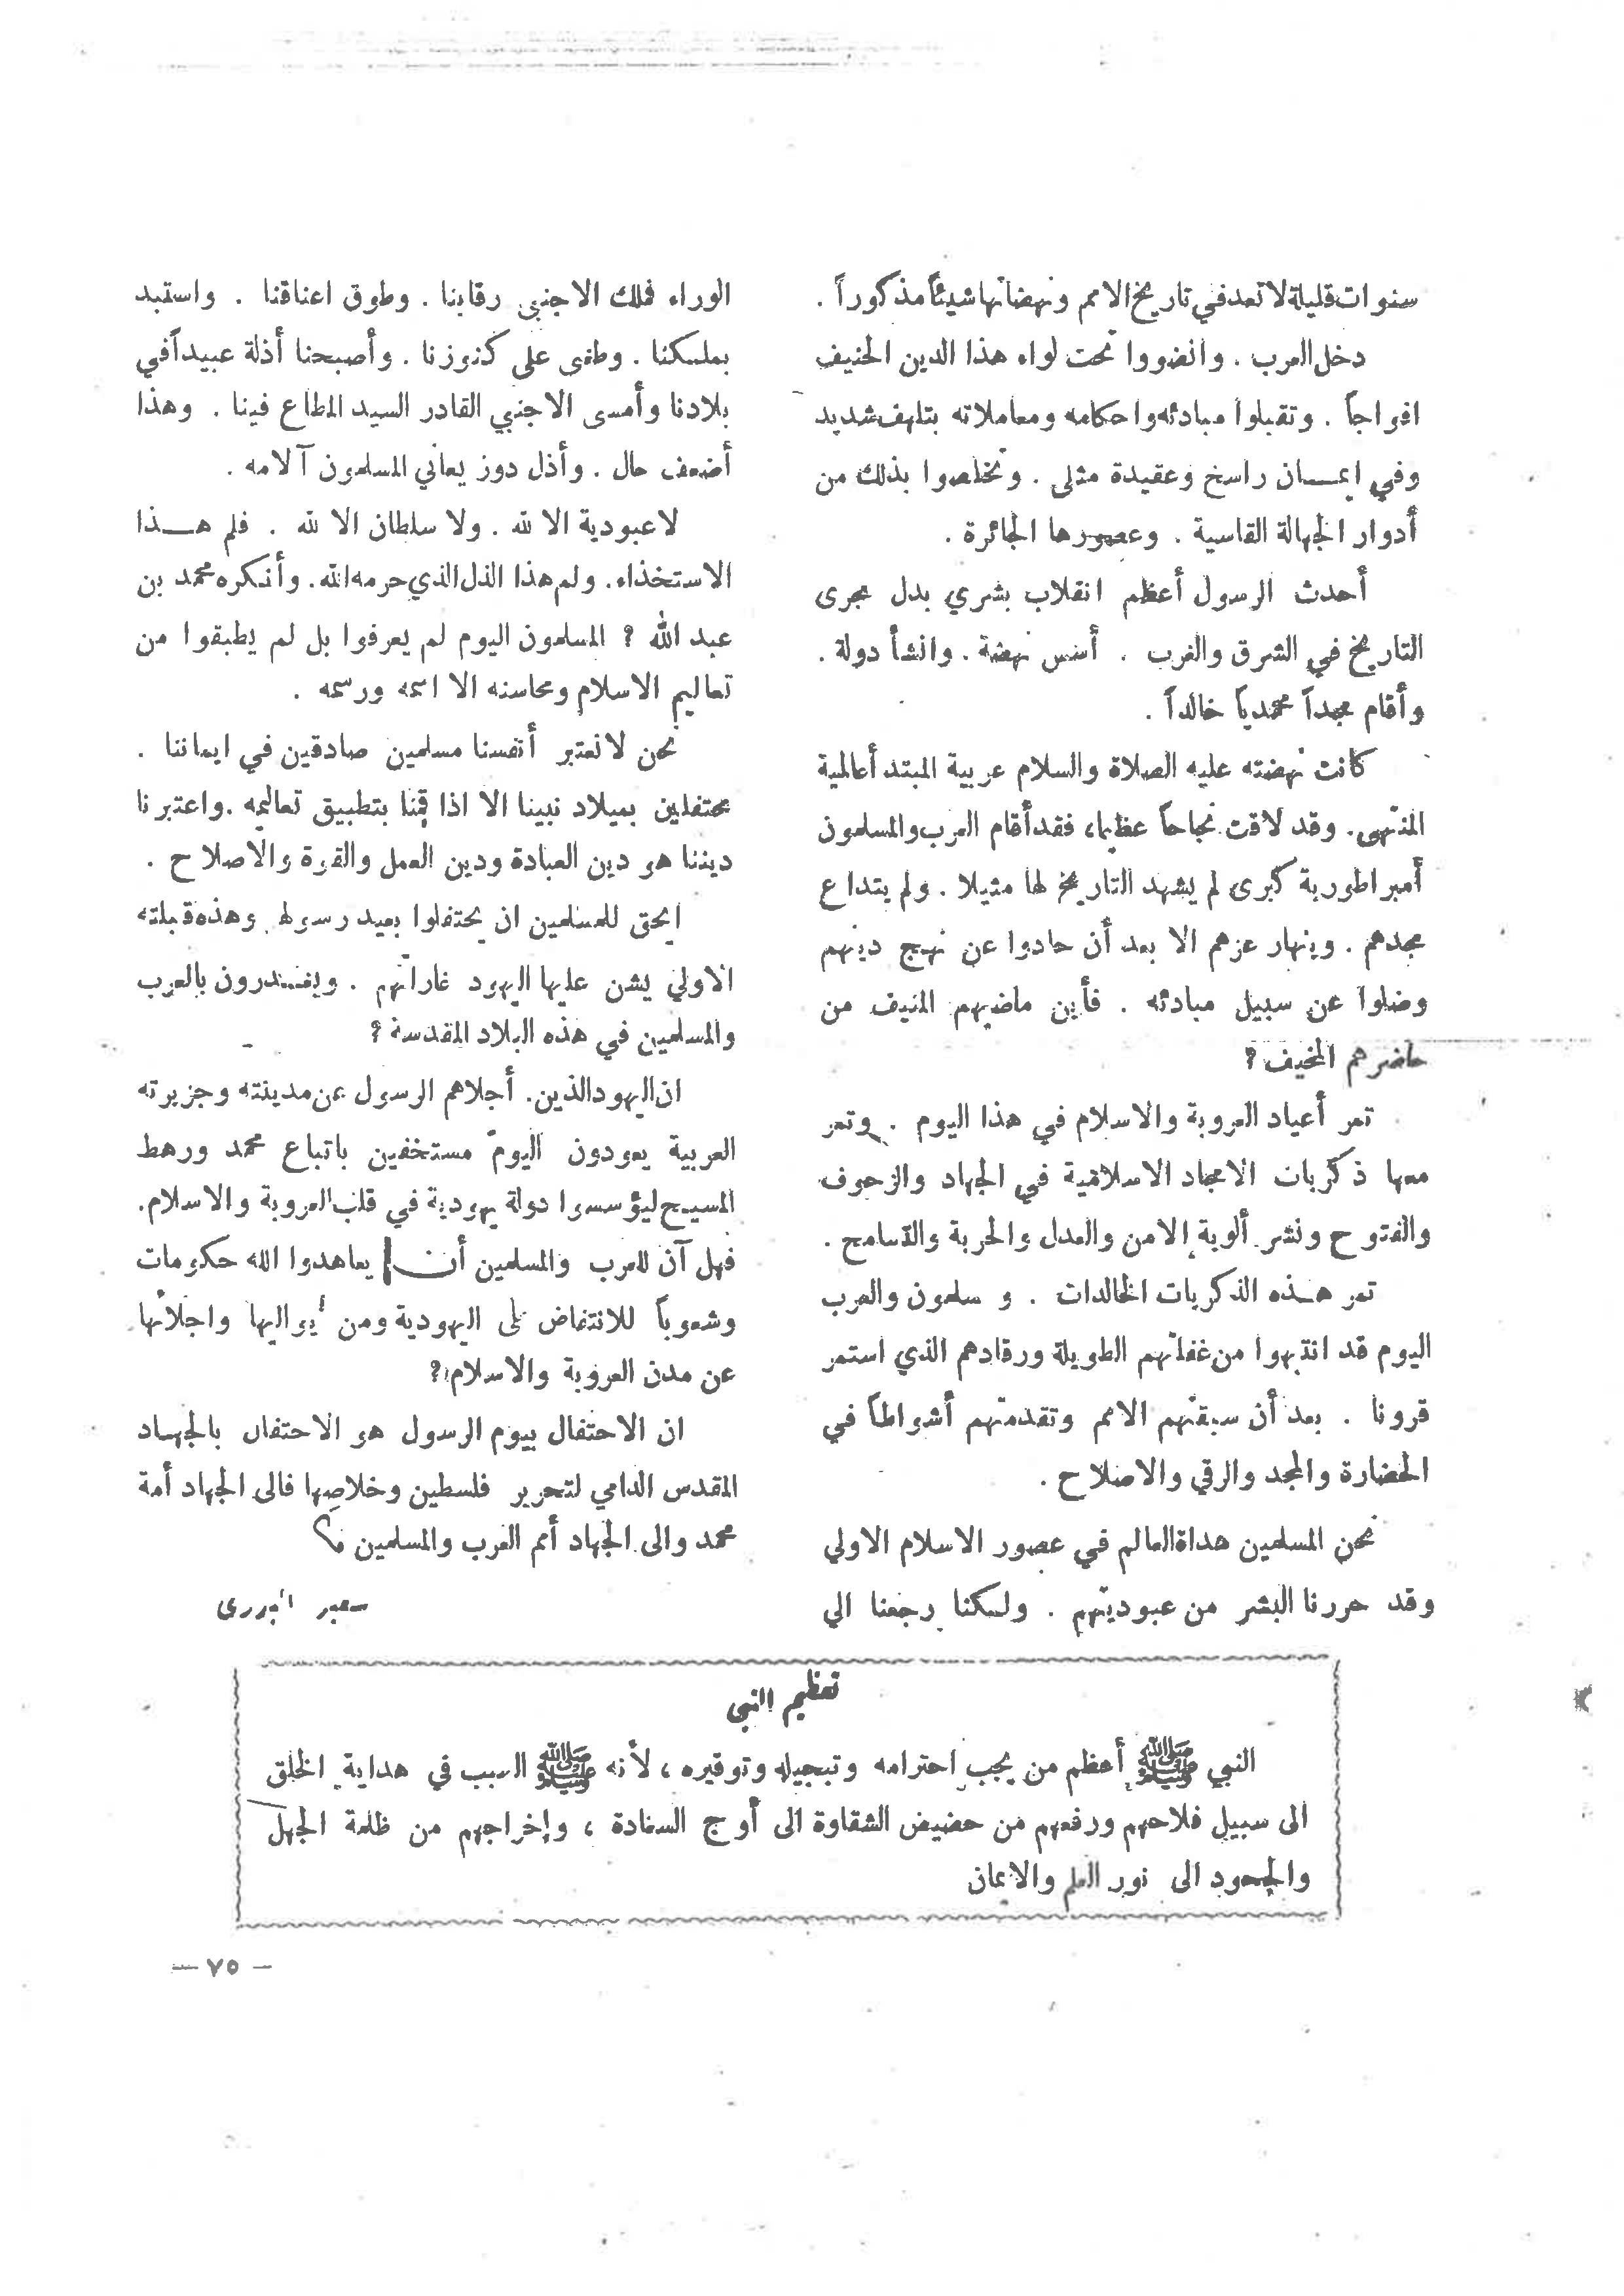 سنوات قليلة لا تعد في تاريخ الامم ونهضاتها شيئاً مذكوراً .
دخل العرب . وانضووا تحت لواء هذا الدين الحنيف
افواجاً . وتقبلوا مبادئه واحكامه ومعاملاته بتلهف شديد
وفي ايمان راسخ وعقيدة مثلى . وتخلصوا بذلك من
أدوار الجهالة القاسية . وعصورها الجائرة .
أحدث الرسول أعظم انقلاب بشري بدل مجرى
التاريخ في الشرق والغرب . أسس نهضة . وانشأ دولة .
وأقام مجداً محمدياً خالداً .
كانت نهضته عليه الصلاة والسلام عربية المبتدأ عالمية
المنتهى . وقد لاقت نجاحاً عظيما ، فقد أقام العرب والمسلمون
أمبراطورية كبرى لم يشهد التاريخ لها مثيلا . ولم يتداع
مجدهم . وينهار عزهم الا بعد أن حادوا عن نهج دينهم
وضلوا عن سبيل مبادئه . فأين ماضيهم المنيف من
حاضرهم المخيف ?
تمر أعياد العروبة والاسلام في هذا اليوم . وتمر
معها ذكريات الامجاد الاسلامية في الجهاد والزحوف
والفتوح ونشر ألوية الامن والعدل والحرية والتسامح .
تمر هذه الذكريات الخالدات . و سلمون والعرب
اليوم قد انتبهوا من غفلتهم الطويلة ورقادهم الذي استمر
قرونا . بعد أن سبقتهم الامم وتقدمتهم أشواطاً في
الحضارة والمجد والرقي والاصلاح .
نحن المسلمين هداة العالم في عصور الاسلام الاولي
وقد حررنا البشر من عبوديتهم . ولكننا رجعنا الي
الوراء فملك الاجنبى رقابنا . وطوق اعناقنا . واستبد
بملكنا . وطغى على كنوزنا . وأصبحنا أذلة عبيداً في
بلادنا وأمسى الاجنبي القادر السيد المطاع فينا . وهذا
أضعف حال . وأذل دور يعاني المسلمون آلامه .
لا عبودية الا لله . ولا سلطان الا لله . فلم هذا
الاستخذاء . ولم هذا الذل الذي حرمه الله . وأنكره محمد بن
عبد الله ? المسلمون اليوم لم يعرفوا بل لم يطبقوا من
تعاليم الاسلام ومحاسنه الا اسمه ورسمه .
نحن لا نعتبر أنفسنا مسلمين صادقين في ايماننا .
محتفلين بميلاد نبينا الا اذا قمنا بتطبيق تعاليمه . واعتبرنا
ديننا هو دين العبادة ودين العمل والقوة والاصلاح .
ايحق للمسلمين ان يحتفلوا بعيد رسولهم وهذه قبلته
الاولي يشن عليها اليهود غاراتهم . ويغدرون بالعرب
والمسلمين في هذه البلاد المقدسة ?
ان اليهود الذين . أجلاهم الرسول عن مدينته وجزيرته
العربية يعودون اليوم مستخفين باتباع محمد ورهط
المسيح ليؤسسوا دولة يهودية في قلب العروبة والاسلام .
فهل آن للعرب والمسلمين أن يعاهدوا الله حكومات
وشعوباً للانتفاض على اليهودية ومن يواليها واجلائها
عن مدن العروبة والاسلام ?
ان الاحتفال بيوم الرسول هو الاحتفال بالجهاد
المقدس الدامي لتحرير فلسطين وخلاصها فالى الجهاد أمة
محمد والى الجهاد أمم العرب والمسلمين
تعظيم النبى
النبي ﷺ أعظم من يجب احترامه وتبجيله وتوقيره ، لأنه ﷺ السبب في هداية الخلق
الى سبيل فلاحهم ورفعهم من حضيض الشقاوة الى أوج السعادة ، وإخراجهم من ظلمة الجهل
والجحود الى نور العلم والايمان
— ٧٥ —